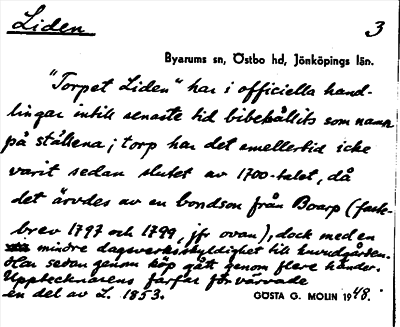 Liden 3
Byarums sn, Östbo hd, Jönköpings län.
"Torpet Liden" har i officiella hand-
lingar intill senaste tid bibehållits som namn
på ställena; torp har det emellertid icke
varit sedan slutet av 1700-talet, då
det ärvdes av en bondson från Boarp (faste-
brev 1797 och 1799, jfr ovan), dock med en
mindre dagsverksskyldighet till huvudgården.
Har sedan genom köp gått genom flere händer.
Upptecknarens farfar förvärvade
en del av L. 1853. GÖSTA G. MOLIN 1948.